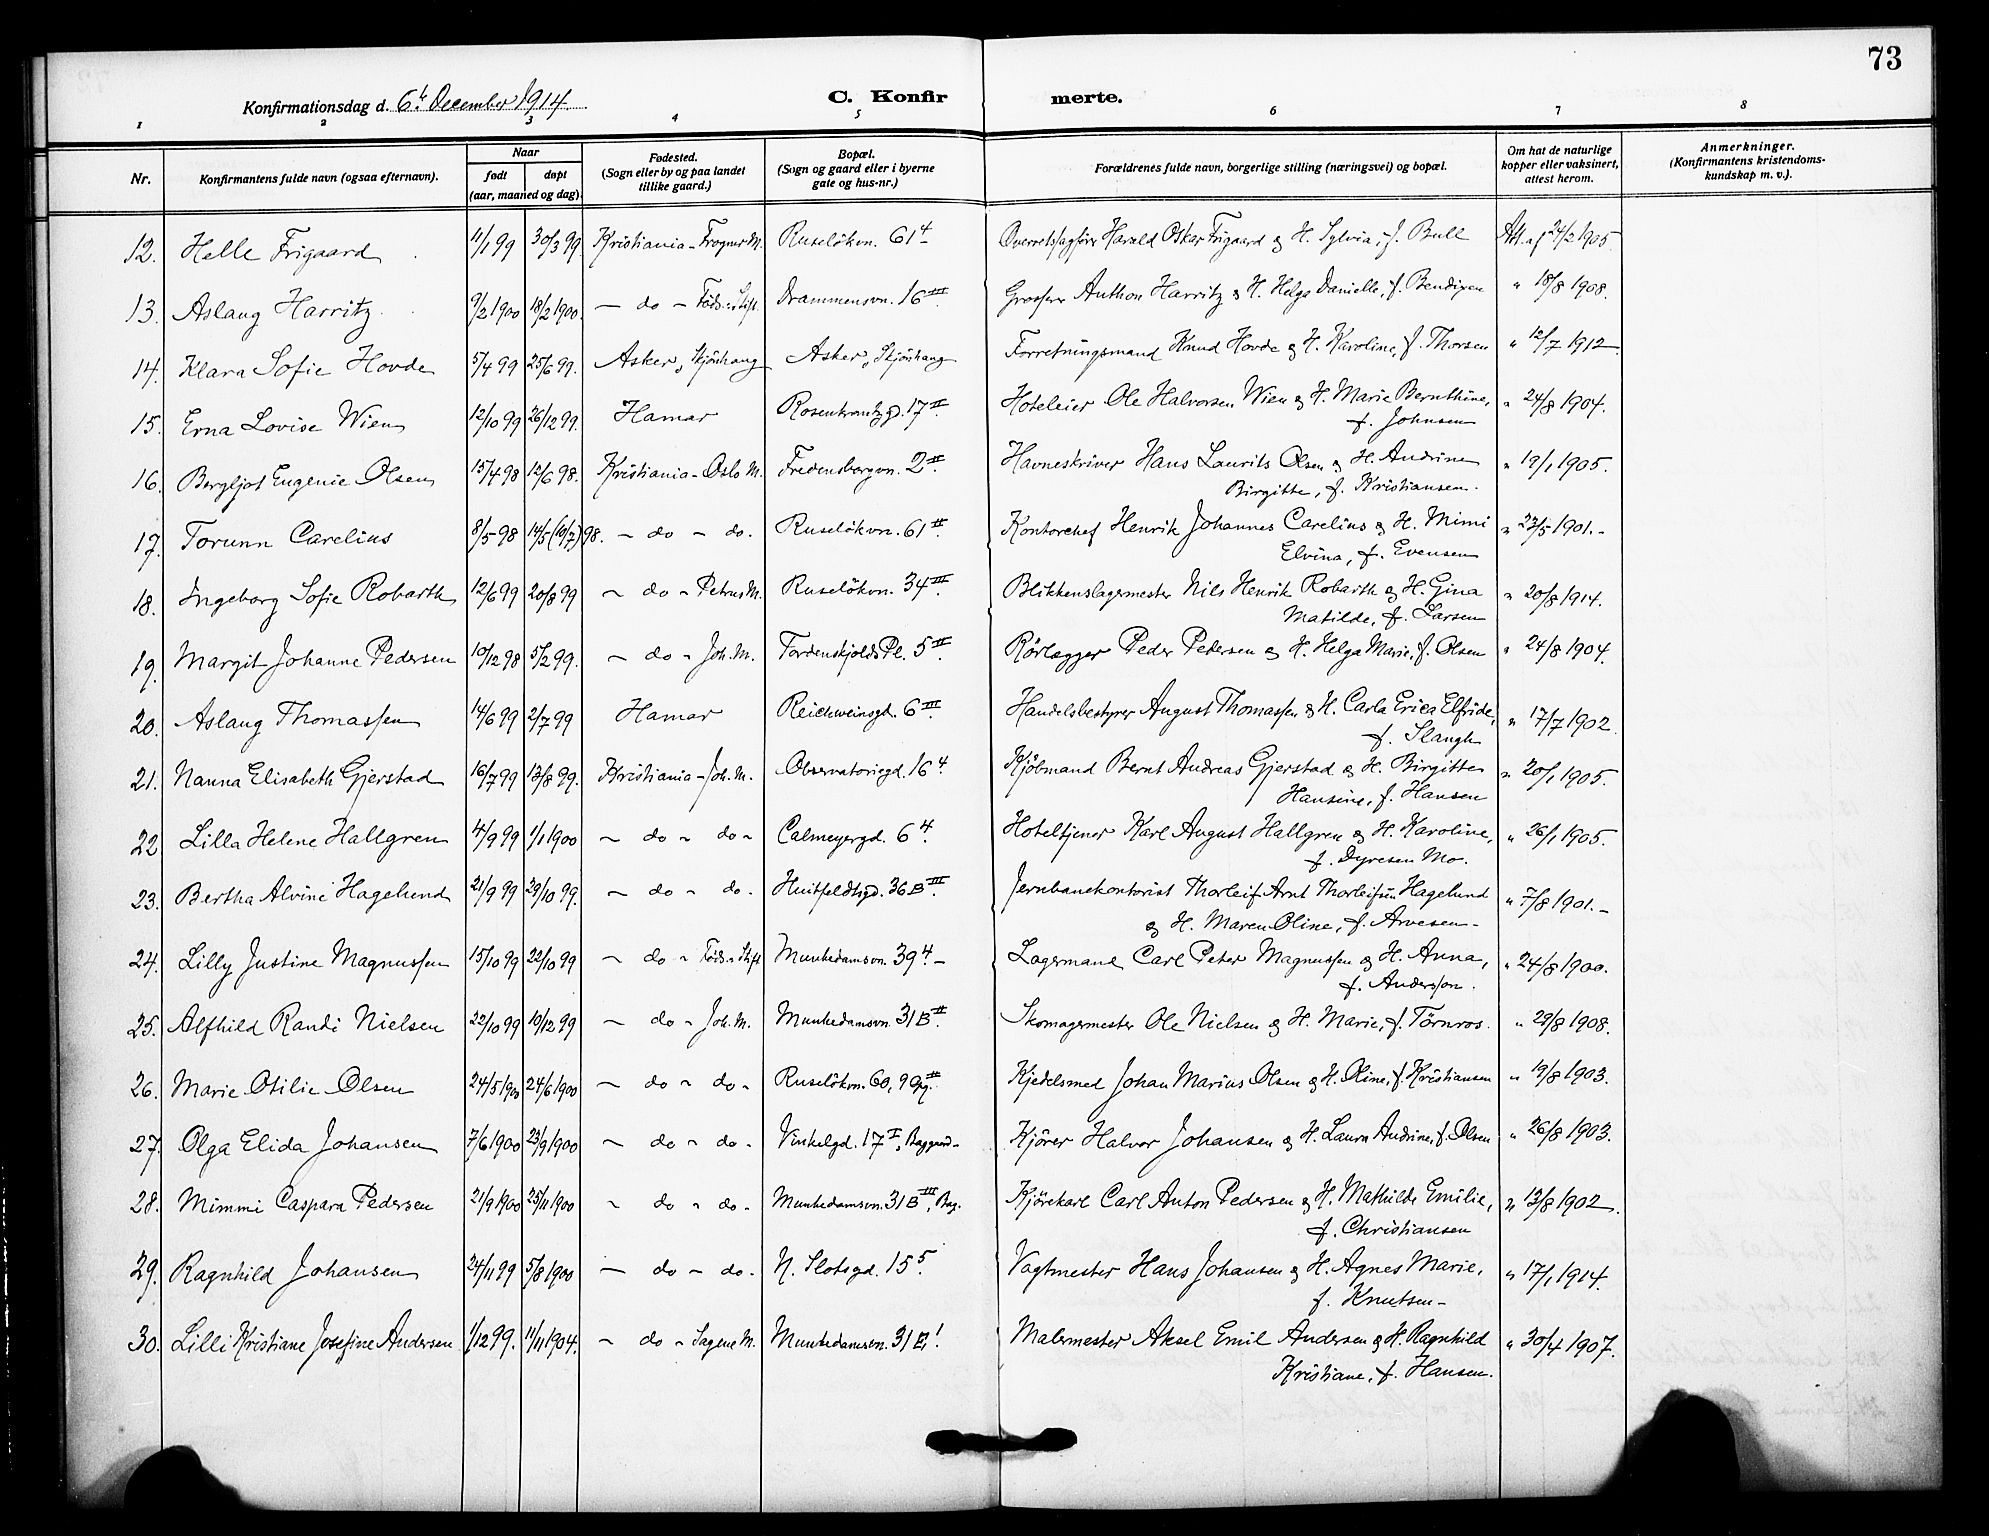 73
Konfirmationsdag d. 6te December 1914.
C. Konfir merte.
1 2 3 4 5 6 7 8
Nr. Konfirmantens fulde navn (ogsaa efternavn). Naar født døpt (aar, maaned og dag). Fødested. (Sogn eller by og paa landet tillike gaard.) Bopæl. (Sogn og gaard eller i byerne gate og hus-nr.) Forældrenes fulde navn, borgerlige stilling (næringsvei) og bopæl. Om hat de naturlige kopper eller vaksinert, attest herom. Anmerkninger. (Konfirmantens kristendoms-kundskap m. v.).
12. Helle Frigaard 11/1 99 30/3 99. Kristiania - Frogner M. Ruseløkvn. 61 4 Overretssagfører Harald Oskar Frigaard & H. Sylvia, f. Bull Att. af 24/2 1905.
13. Aslaug Harritz 9/2 1900 18/2 1900. - do - Føds.Stift. Drammensvn. 16 III Grosserer Anthon Harritz & H. Helga Danielle, f. Bendixen " 18/8 1908.
14. Klara Sofie Hovde 5/4 99 25/6 99. Asker, Skjønhaug Asker, Skjønhaug Forretningsmand Knud Hovde & H. Karoline, f. Thorsen " 12/7 1912.
15. Erna Lovise Wien 12/10 99 26/12 99. Hamar Rosenkrantzgd. 17 II. Hoteleier Ole Halvorsen Wien & H. Marie Bernthine, " 24/8 1904.
f. Johnsen
16. Bergljot Eugenie Olsen 15/4 98 12/6 98. Kristiania - Oslo M. Fredensborgvn. 2 II. Havneskriver Hans Laurits Olsen & H. Andrine " 19/1 1905.
Birgitte, f. Kristiansen.
17. Torunn Carelius 8/5 98 14/5 (10/7) 98. - do - do. Ruseløkvn. 61 II Kontorchef Henrik Johannes Carelius & H. Mimi " 23/5 1901.-
Elvina, f. Evensen
18. Ingeborg Sofie Robarth 12/6 99 20/8 99 - do - Petrus M. Ruseløkvn. 34 III. Blikkenslagermester Nils Henrik Robarth & H. Gina " 20/8 1914.
Matilde, f. Larsen
19. Margit Johanne Pedersen 10/12 98 5/2 99. - do - Joh. M. Tordenskjolds Pl. 5 II. Rørlægger Peder Pedersen & H. Helga Marie, f. Olsen " 24/8 1904.
20. Aslaug Thomassen 14/6 99 2/7 99 Hamar Reichweinsgd. 6 III. Handelsbestyrer August Thomassen & H. Carla Erica Elfride, " 17/7 1902.
f. Slangh
21. Nanna Elisabeth Gjerstad 16/7 99 13/8 99. Kristiania - Joh. M. Observatoriegd. 16 4. Kjøbmand Bernt Andreas Gjerstad & H. Birgitte " 20/1 1905.
Hansine, f. Hansen
22. Lilla Helene Hallgren 4/9 99 1/1 1900 - do - do - Calmeyergd. 6 4. Hoteltjener Karl August Hallgren & H. Karoline, " 26/1 1905.
f. Dyresen Mo.
23. Bertha Alvine Hagelund 21/9 99 29/10 99. - do - do. Huitfeldtsgd. 36 B III. Jernbanekontorist Thorleif Arnt Thorleifsen Hagelund " 7/8 1901.-
& H. Maren Oline, f. Arvesen-
24. Lilly Justine Magnussen 15/10 99 22/10 99 - do - Føds. Stift Munkedamsvn. 39 4.- Lagermand Carl Peter Magnussen & H. Anna, " 24/8 1900.
f. Andersson.
25. Alfhild Randi Nielsen 22/10 99 10/12 99 - do - Joh. M. Munkedamsvn. 31 B II. Skomagermester Ole Nielsen & H. Marie, f. Törnros. " 29/8 1908.
26. Marie Otilie Olsen 24/5 1900 24/6 1900 - do - do - Ruseløkvn. 60, 9 Opg. II Kjedelsmed Johan Marius Olsen & H. Oline, f. Kristiansen " 19/8 1903.
27. Olga Elida Johansen 7/6 1900 23/9 1900 - do - do - Vinkelgd. 17 I, Baggaard- Kjører Halvor Johansen & H. Laura Andrine, f. Olsen " 26/8 1903.
28. Mimmi Caspara Pedersen 21/9 1900 25/11 1900 - do - do - Munkedamsvn. 31 B III, Bag. Kjørekarl Carl Anton Pedersen & H. Mathilde Emilie, " 13/8 1902.
f. Christiansen
29. Ragnhild Johansen 24/11 99 5/8 1900 - do - do. N. Slotsgd. 15 5. Vagtmester Hans Johansen & H. Agnes Marie, " 17/1 1914.
f. Knutsen-
30. Lilli Kristiane Josefine Andersen 1/12 99. 11/11 1904. - do - Sagene M. Munkedamsvn. 31 B I. Malermester Aksel Emil Andersen & H. Ragnhild " 30/4 1907.
Kristiane, f. Hansen.